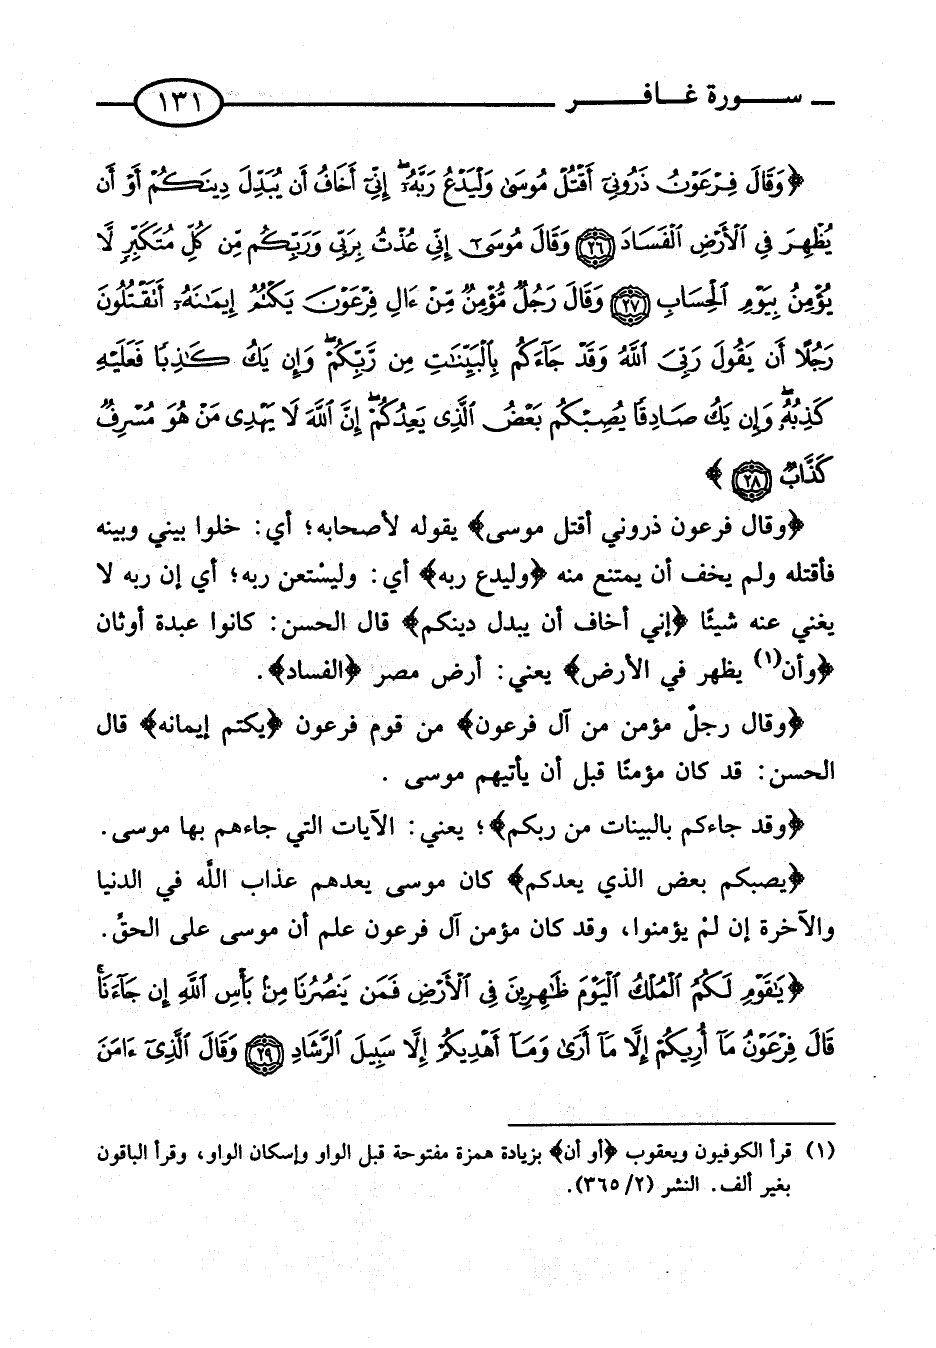 سورة غافر ١٣١
﴿وَقَالَ فِرْعَوْنُ ذَرُونِيٓ أَقْتُلْ مُوسَىٰ وَلْيَدْعُ رَبَّهُۥٓ ۖ إِنِّيٓ أَخَافُ أَن يُبَدِّلَ دِينَكُمْ أَوْ أَن
يُظْهِرَ فِي ٱلْأَرْضِ ٱلْفَسَادَ ٢٦ وَقَالَ مُوسَىٰٓ إِنِّي عُذْتُ بِرَبِّي وَرَبِّكُم مِّن كُلِّ مُتَكَبِّرٍ لَّا
يُؤْمِنُ بِيَوْمِ ٱلْحِسَابِ ٢٧ وَقَالَ رَجُلٌ مُّؤْمِنٌ مِّنْ ءَالِ فِرْعَوْنَ يَكْتُمُ إِيمَٰنَهُۥٓ أَتَقْتُلُونَ
رَجُلًا أَن يَقُولَ رَبِّيَ ٱللَّهُ وَقَدْ جَآءَكُم بِٱلْبَيِّنَٰتِ مِن رَّبِّكُمْ ۖ وَإِن يَكُ كَٰذِبًا فَعَلَيْهِ
كَذِبُهُۥ ۖ وَإِن يَكُ صَادِقًا يُصِبْكُم بَعْضُ ٱلَّذِى يَعِدُكُمْ ۖ إِنَّ ٱللَّهَ لَا يَهْدِى مَنْ هُوَ مُسْرِفٌ
كَذَّابٌ ٢٨﴾
﴿وقال فرعون ذروني أقتل موسى﴾ يقوله لأصحابه؛ أي: خلوا بيني وبينه
فأقتله ولم يخف أن يمتنع منه ﴿وليدع ربه﴾ أي: وليسْتعن ربه؛ أي إن ربه لا
يغني عنه شيئًا ﴿إني أخاف أن يبدل دينكم﴾ قال الحسن: كانوا عبدة أوثان
﴿وأن(١) يظهر في الأرض﴾ يعني: أرض مصر ﴿الفساد﴾.
﴿وقال رجلٌ مؤمن من آل فرعون﴾ من قوم فرعون ﴿يكتم إيمانه﴾ قال
الحسن: قد كان مؤمنًا قبل أن يأتيهم موسى .
﴿وقد جاءكم بالبينات من ربكم﴾؛ يعني: الآيات التي جاءهم بها موسى.
﴿يصبكم بعض الذي يعدكم﴾ كان موسى يعدهم عذاب اللَّه في الدنيا
والآخرة إن لمْ يؤمنوا، وقد كان مؤمن آل فرعون علم أن موسى على الحقِّ.
﴿يَٰقَوْمِ لَكُمُ ٱلْمُلْكُ ٱلْيَوْمَ ظَٰهِرِينَ فِي ٱلْأَرْضِ فَمَن يَنصُرُنَا مِنۢ بَأْسِ ٱللَّهِ إِن جَآءَنَا ۚ
قَالَ فِرْعَوْنُ مَآ أُرِيكُمْ إِلَّا مَآ أَرَىٰ وَمَآ أَهْدِيكُمْ إِلَّا سَبِيلَ ٱلرَّشَادِ ٢٩ وَقَالَ ٱلَّذِىٓ ءَامَنَ
(١) قرأ الكوفيون ويعقوب ﴿أو أن﴾ بزيادة همزة مفتوحة قبل الواو وإسكان الواو، وقرأ الباقون
بغير ألف. النشر (٢/ ٣٦٥).